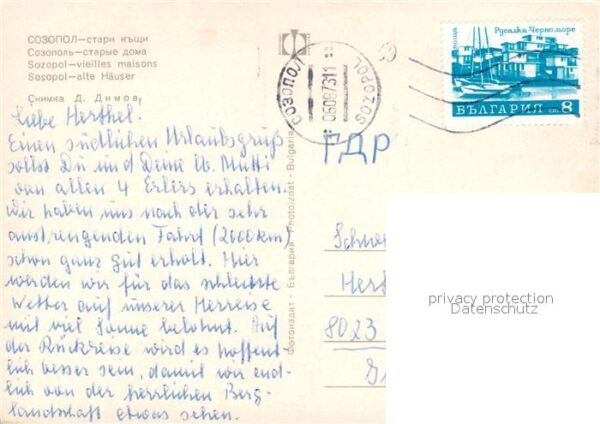 СОЗОПОЛ—стари къщи
Созополь—старые дома
Sozopol—vieilles maisons
Sosopol—alte Häuser
Снимка Д. Димов
Liebe Herthel.
Einen südlichen Urlaubsgruß
sollst Du und Deine lb. Mutti
von allen 4 Erlers erhalten.
Wir haben uns nach der sehr
anstrengenden Fahrt (2000 km)
schon ganz gut erholt. Hier
werden wir für das schlechte
Wetter auf unserer Herreise
mit viel Sonne belohnt. Auf
der Rückreise wird es hoffent-
lich besser sein, damit wir end-
lich von der herrlichen Berg-
landschaft etwas sehen.
Фотоиздат - България - Photoizdat - Bulgaria
СОЗОПОЛ
06087311
SOZOPOL
поща
Русалка-Черноморе
БЪЛГАРИЯ ст. 8
ГДР
Schwe
Herth
8023
privacy protection
Datenschutz